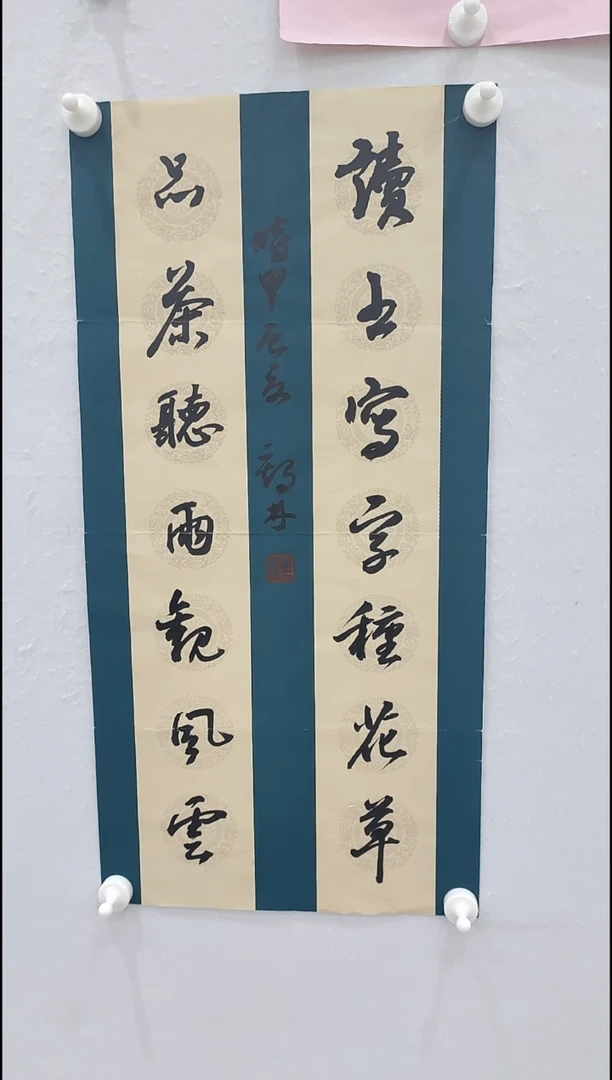 讀书寫字種花草
品茶聽雨觀風雲
時甲辰